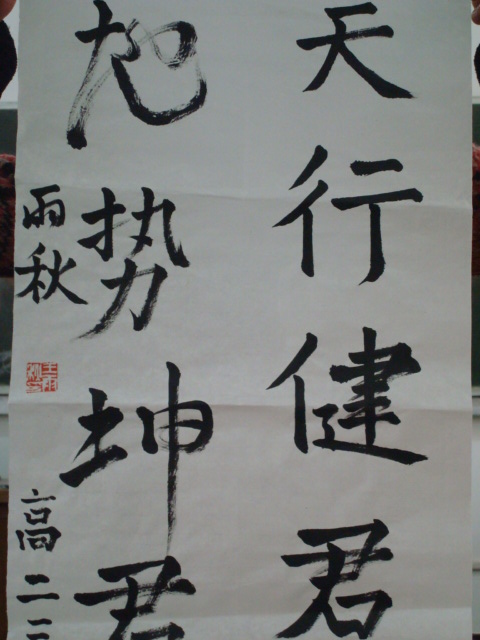 天行健君
地势坤君
雨秋
高二三